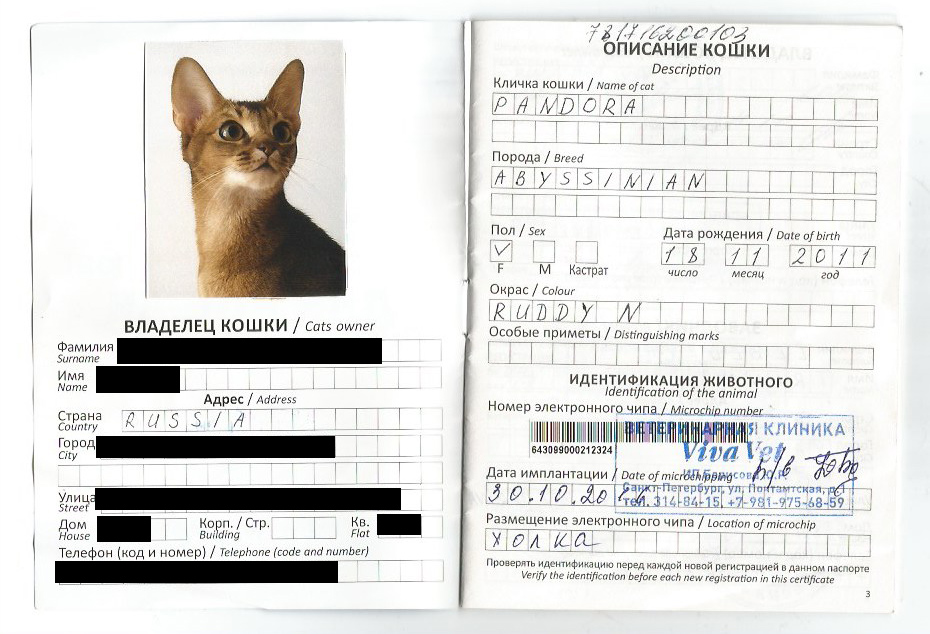 ВЛАДЕЛЕЦ КОШКИ / Cats owner
Фамилия
Surname
Имя
Name
Адрес / Address
Страна
Country
RUSSIA
Город
City
Улица
Street
Дом
House
Корп. / Стр.
Building
Кв.
Flat
Телефон (код и номер) / Telephone (code and number)
ОПИСАНИЕ КОШКИ
Description
Кличка кошки / Name of cat
PANDORA
Порода / Breed
ABYSSINIAN
Пол / Sex
F M Кастрат
Дата рождения / Date of birth
18 11 2011
число месяц год
Окрас / Colour
RUDDY N
Особые приметы / Distinguishing marks
ИДЕНТИФИКАЦИЯ ЖИВОТНОГО
Identification of the animal
Номер электронного чипа / Microchip number
ВЕТЕРИНАРНАЯ КЛИНИКА
643099000212324
Viva Vet
Дата имплантации / Date of microchipping
Санкт-Петербург, ул. Почтамтская, д.
30.10.20
тел. 314-84-15, +7-981-975-68-59
Размещение электронного чипа / Location of microchip
холка
Проверять идентификацию перед каждой новой регистрацией в данном паспорте
Verify the identification before each new registration in this certificate
3